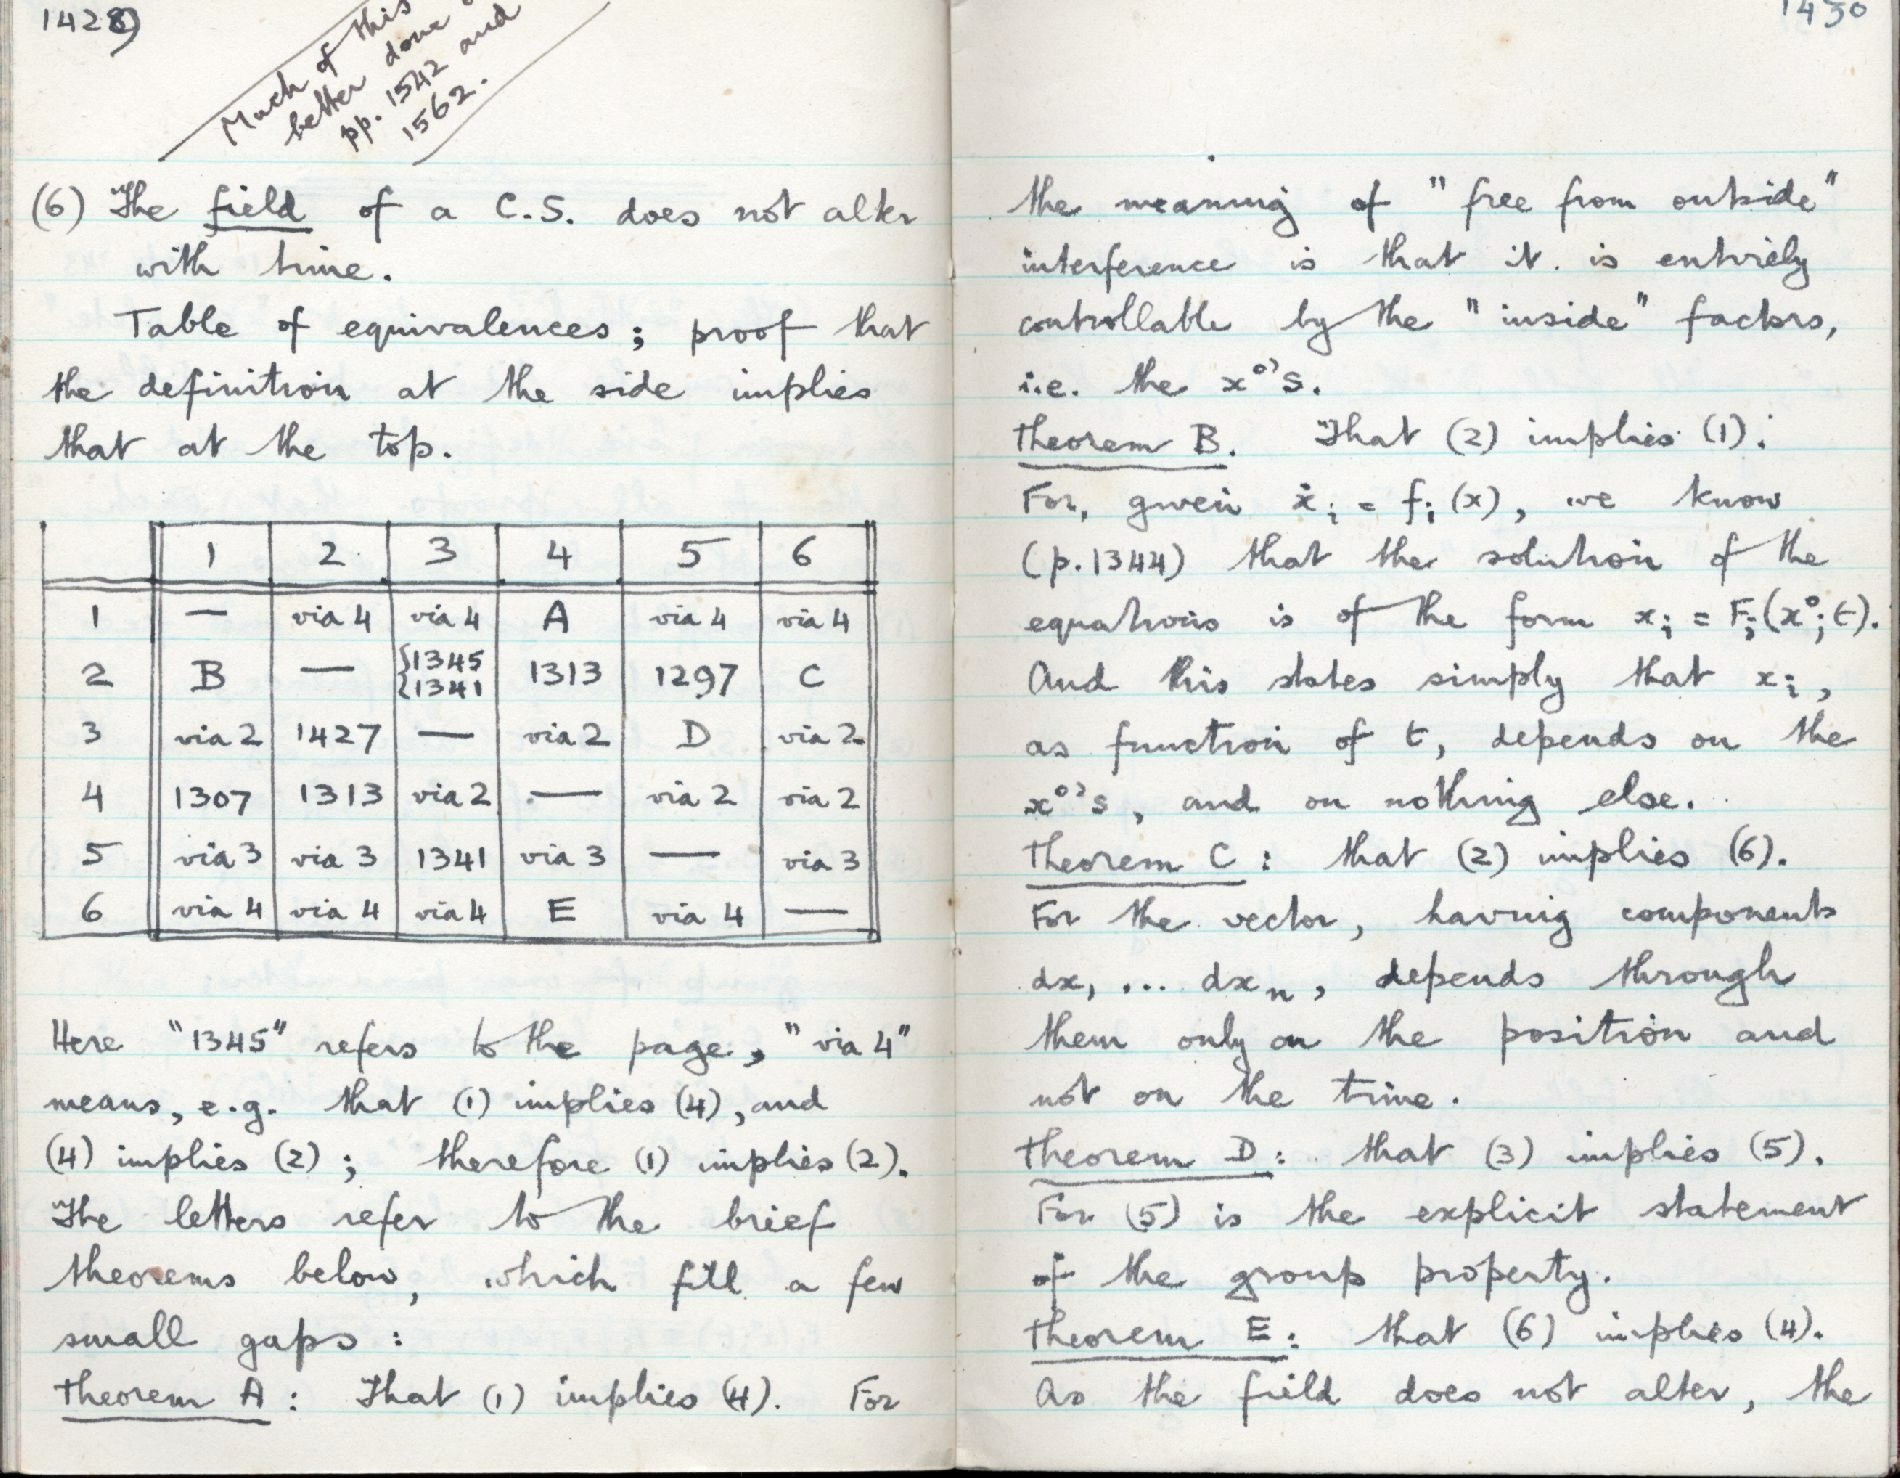 Much of this
better done
pp. 1542 and
1562.
(6) The field of a C.S. does not alter
with time.
Table of equivalences; proof that
the definition at the side implies
that at the top.
1 2 3 4 5 6
1 — via 4 via 4 A via 4 via 4
2 B — {1345 1341 1313 1297 C
3 via 2 1427 — via 2 D via 2
4 1307 1313 via 2 — via 2 via 2
5 via 3 via 3 1341 via 3 — via 3
6 via 4 via 4 via 4 E via 4 —
Here "1345" refers to the page, "via 4"
means, e.g. that (1) implies (4), and
(4) implies (2); therefore (1) implies (2).
The letters refer to the brief
theorems below, which fill a few
small gaps:
Theorem A: That (1) implies (4). For
1430
the meaning of "free from outside"
interference is that it is entirely
controllable by the "inside" factors,
i.e. the x⁰'s.
Theorem B. That (2) implies (1):
For, given ẋᵢ = fᵢ(x), we know
(p.1344) that the solution of the
equations is of the form xᵢ = Fᵢ(x⁰; t).
And this states simply that xᵢ,
as function of t, depends on the
x⁰'s, and on nothing else.
Theorem C: that (2) implies (6).
For the vector, having components
dx₁ ... dxₙ, depends through
them only on the position and
not on the time.
Theorem D: that (3) implies (5).
For (5) is the explicit statement
of the group property.
Theorem E: that (6) implies (4).
As the field does not alter, the